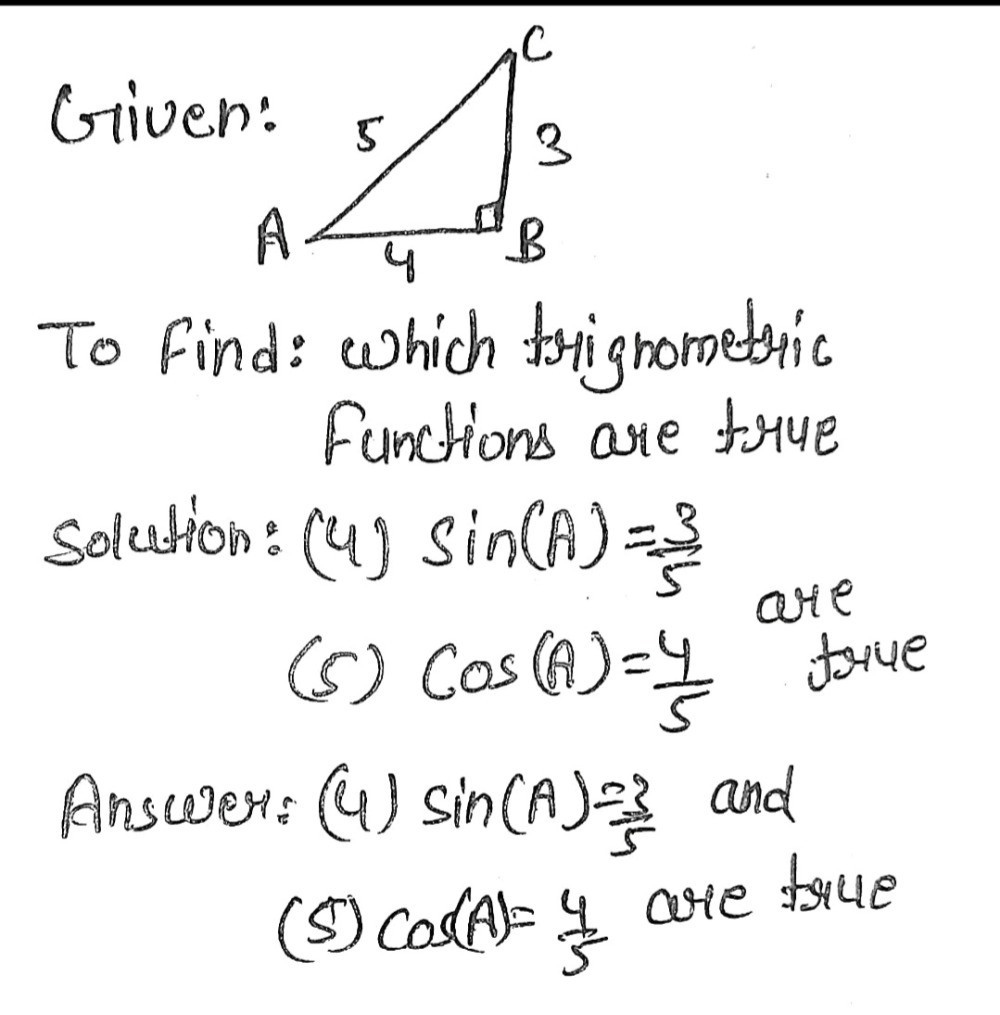 C
Given:
5
3
A
4
B
To find: which trignometric
functions are true
Solution: (4) sin(A) = 3/5
are
(5) Cos(A) = 4/5 true
Answer: (4) sin(A) = 3/5 and
(5) cos(A) = 4/5 are true